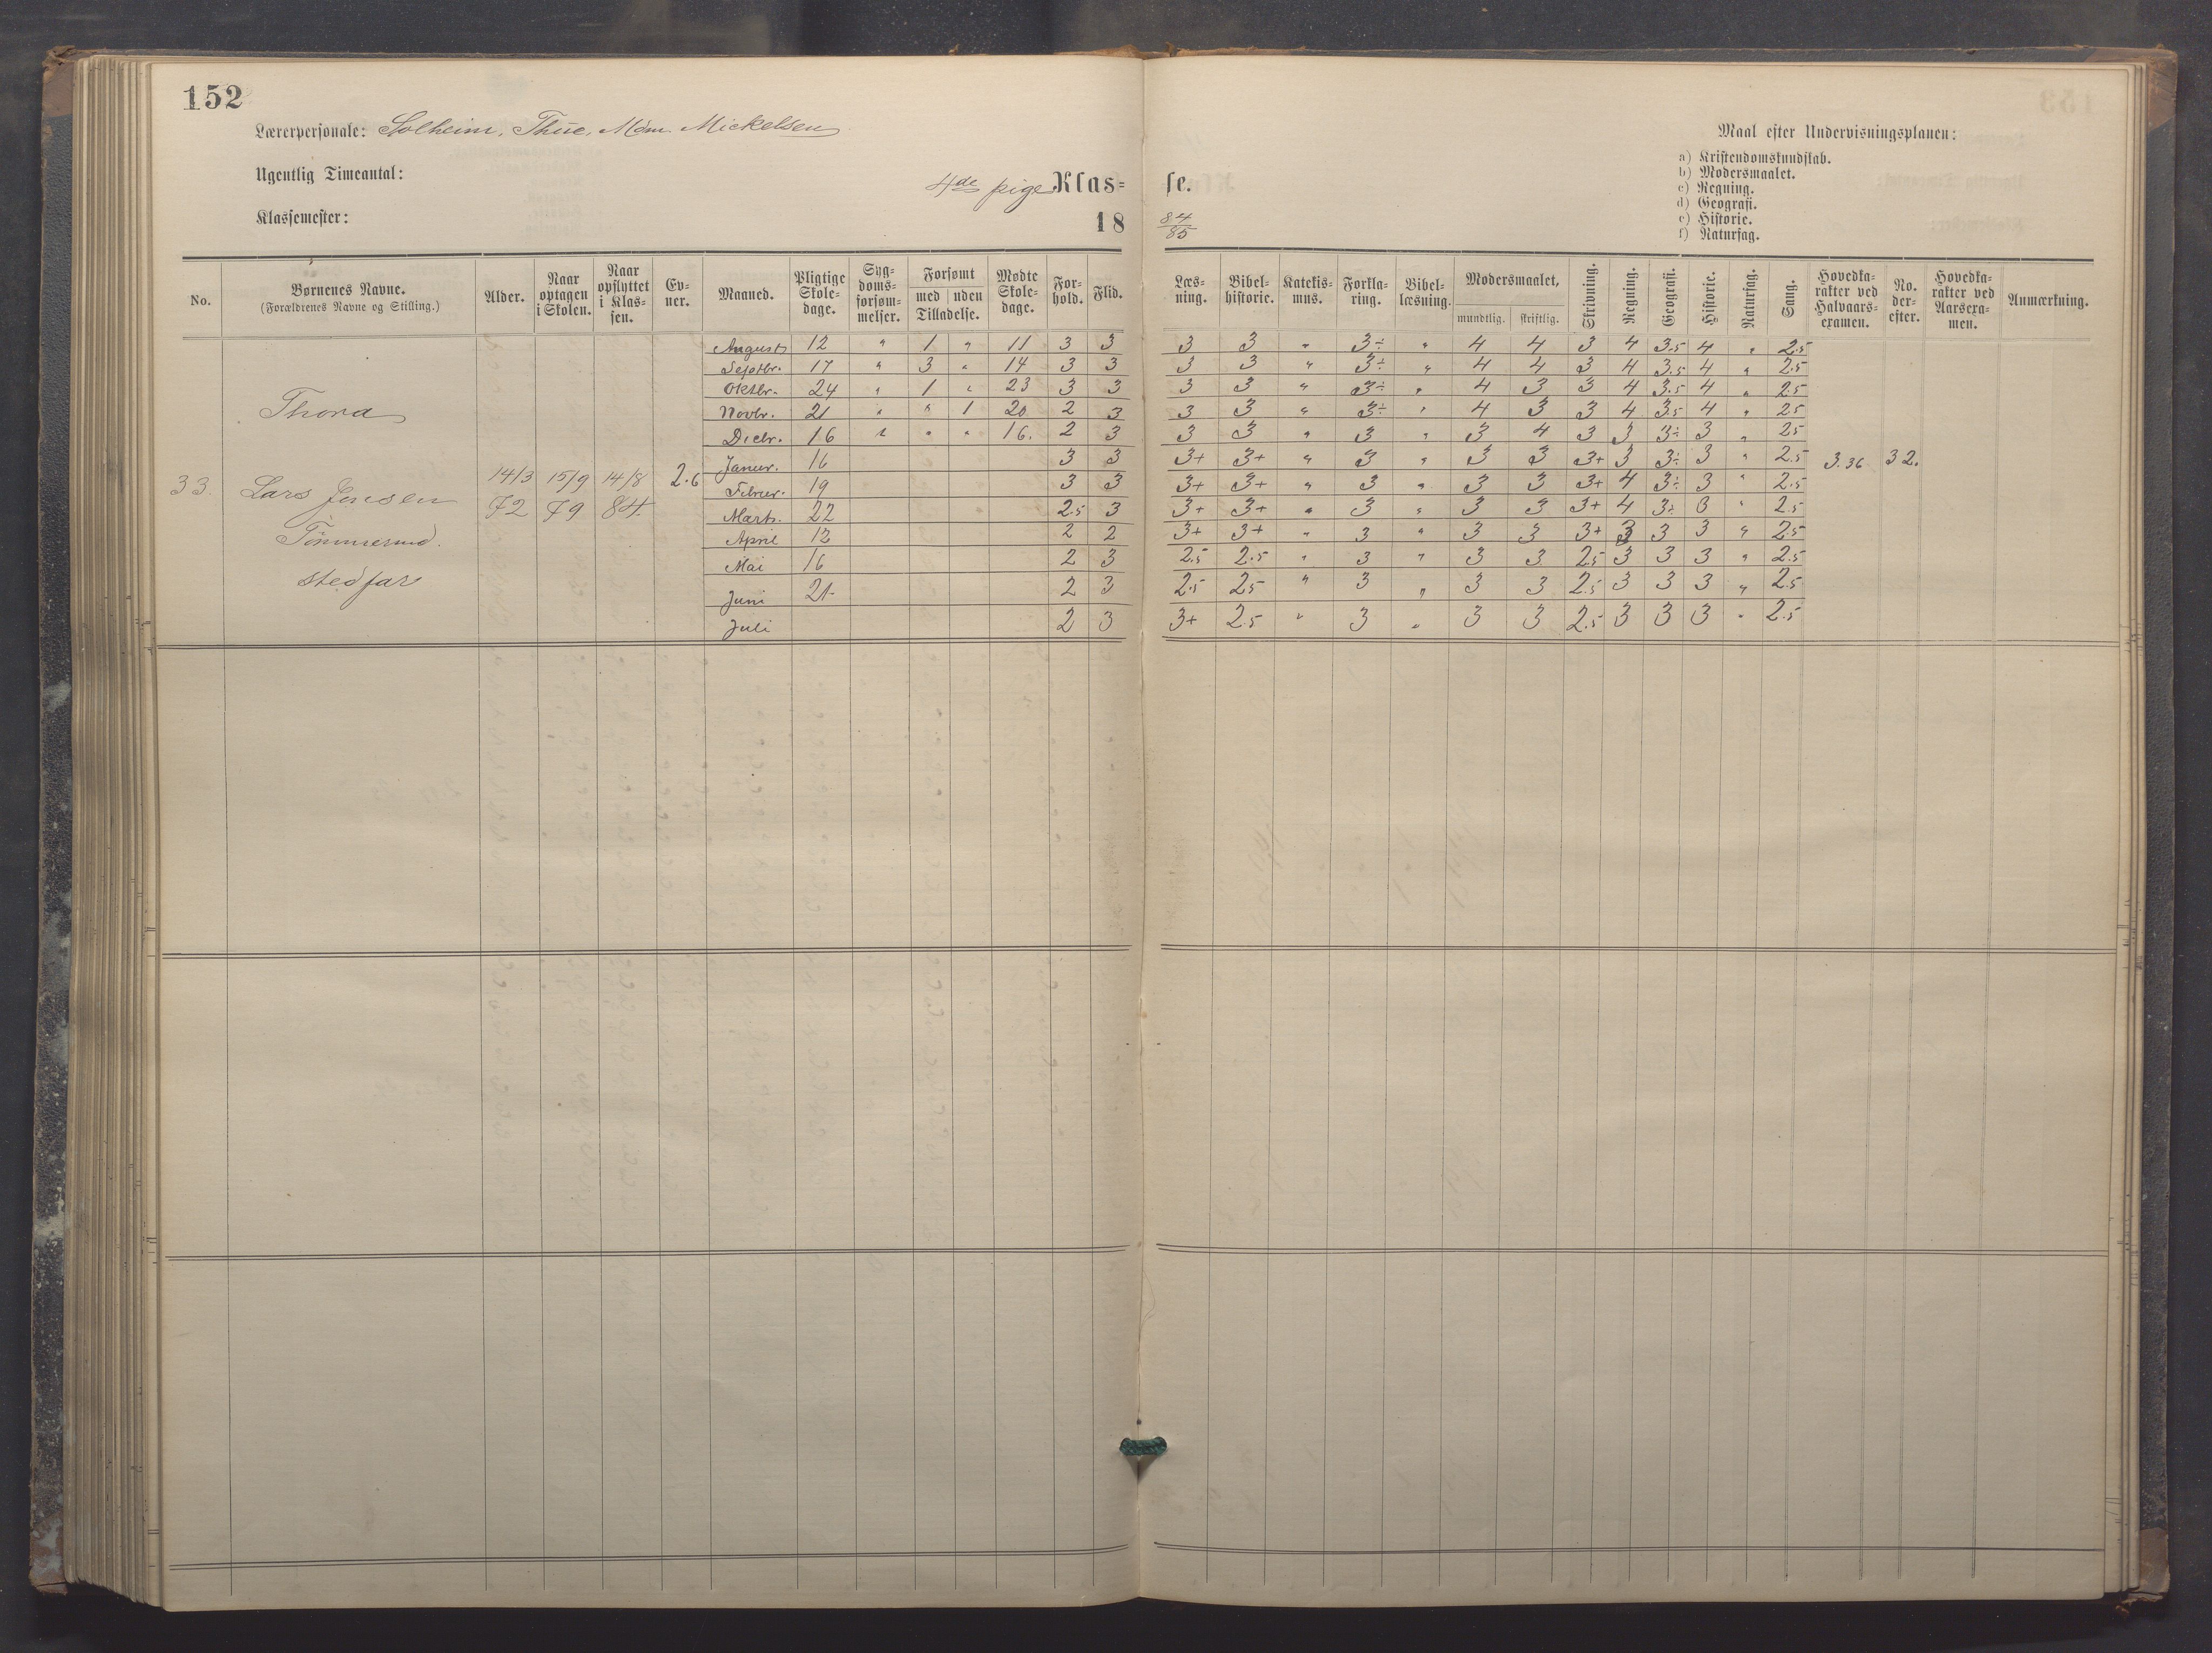 152
Lærerpersonale: Solheim, Thue, Mdm. Mickelsen
Ugentlig Timeantal:
4de pige Klas= se.
Klassemester:
18 84/85
Maal efter Undervisningsplanen:
a) Kristendomskundskab.
b) Modersmaalet.
c) Regning.
d) Geografi.
e) Historie.
f) Naturfag.
No. | Børnenes Navne. (Forældrenes Navne og Stilling.) | Alder. | Naar optagen i Skolen. | Naar opflyttet i Klas= sen. | Ev= ner. | Maaned. | Pligtige Skole= dage. | Syg= doms= forsøm= melser. | Forsømt med uden Tilladelse. | Mødte Skole= dage. | For= hold. | Flid. | Læs= ning. | Bibel= historie. | Katekis= mus. | Forkla= ring. | Bibel= læsning. | Modersmaalet, mundtlig. skriftlig. | Skrivning. | Regning. | Geografi. | Historie. | Naturfag. | Sang. | Hovedka= rakter ved Halvaars= examen. | No. der= efter. | Hovedka= rakter ved Aarsexa= men. | Anmærkning.
33
Thora
Lars Jensen
stedfar
14/3 72
15/9 79
14/8 84.
2.6
August 12 " 1 " 11 3 3 3 3 " 3÷ " 4 4 3 4 3.5 4 " 2.5
Septbr. 17 " 3 " 14 3 3 3 3 " 3÷ " 4 4 3 4 3.5 4 " 2.5
Oktbr. 24 " 1 " 23 3 3 3 3 " 3÷ " 4 3 3 4 3.5 4 " 2.5
Novbr. 21 " " 1 20 2 3 3 3 " 3÷ " 4 3 3 4 3.5 4 " 2.5
Decbr. 16 " " " 16. 2 3 3 3 " 3 " 3 4 3 3 3÷ 3 " 2.5
Januar. 16 3 3 3+ 3+ " 3 " 3 3 3+ 3 3÷ 3 " 2.5
Februr. 19 3 3 3+ 3+ " 3 " 3 3 3+ 4 3÷ 3 " 2.5
Marts. 22 2.5 3 3+ 3+ " 3 " 3 3 3+ 4 3÷ 3 " 2.5
April 13 2 2 3+ 3+ " 3 " 3 3 3+ 3 3 3 " 2.5
Mai 16 2 3 2.5 2.5 " 3 " 3 3 2.5 3 3 3 " 2.5
Juni 21 2 3 2.5 2.5 " 3 " 3 3 2.5 3 3 3 " 2.5
Juli 2 3 3+ 2.5 " 3 " 3 3 2.5 3 3 3 " 2.5
3.36 32.